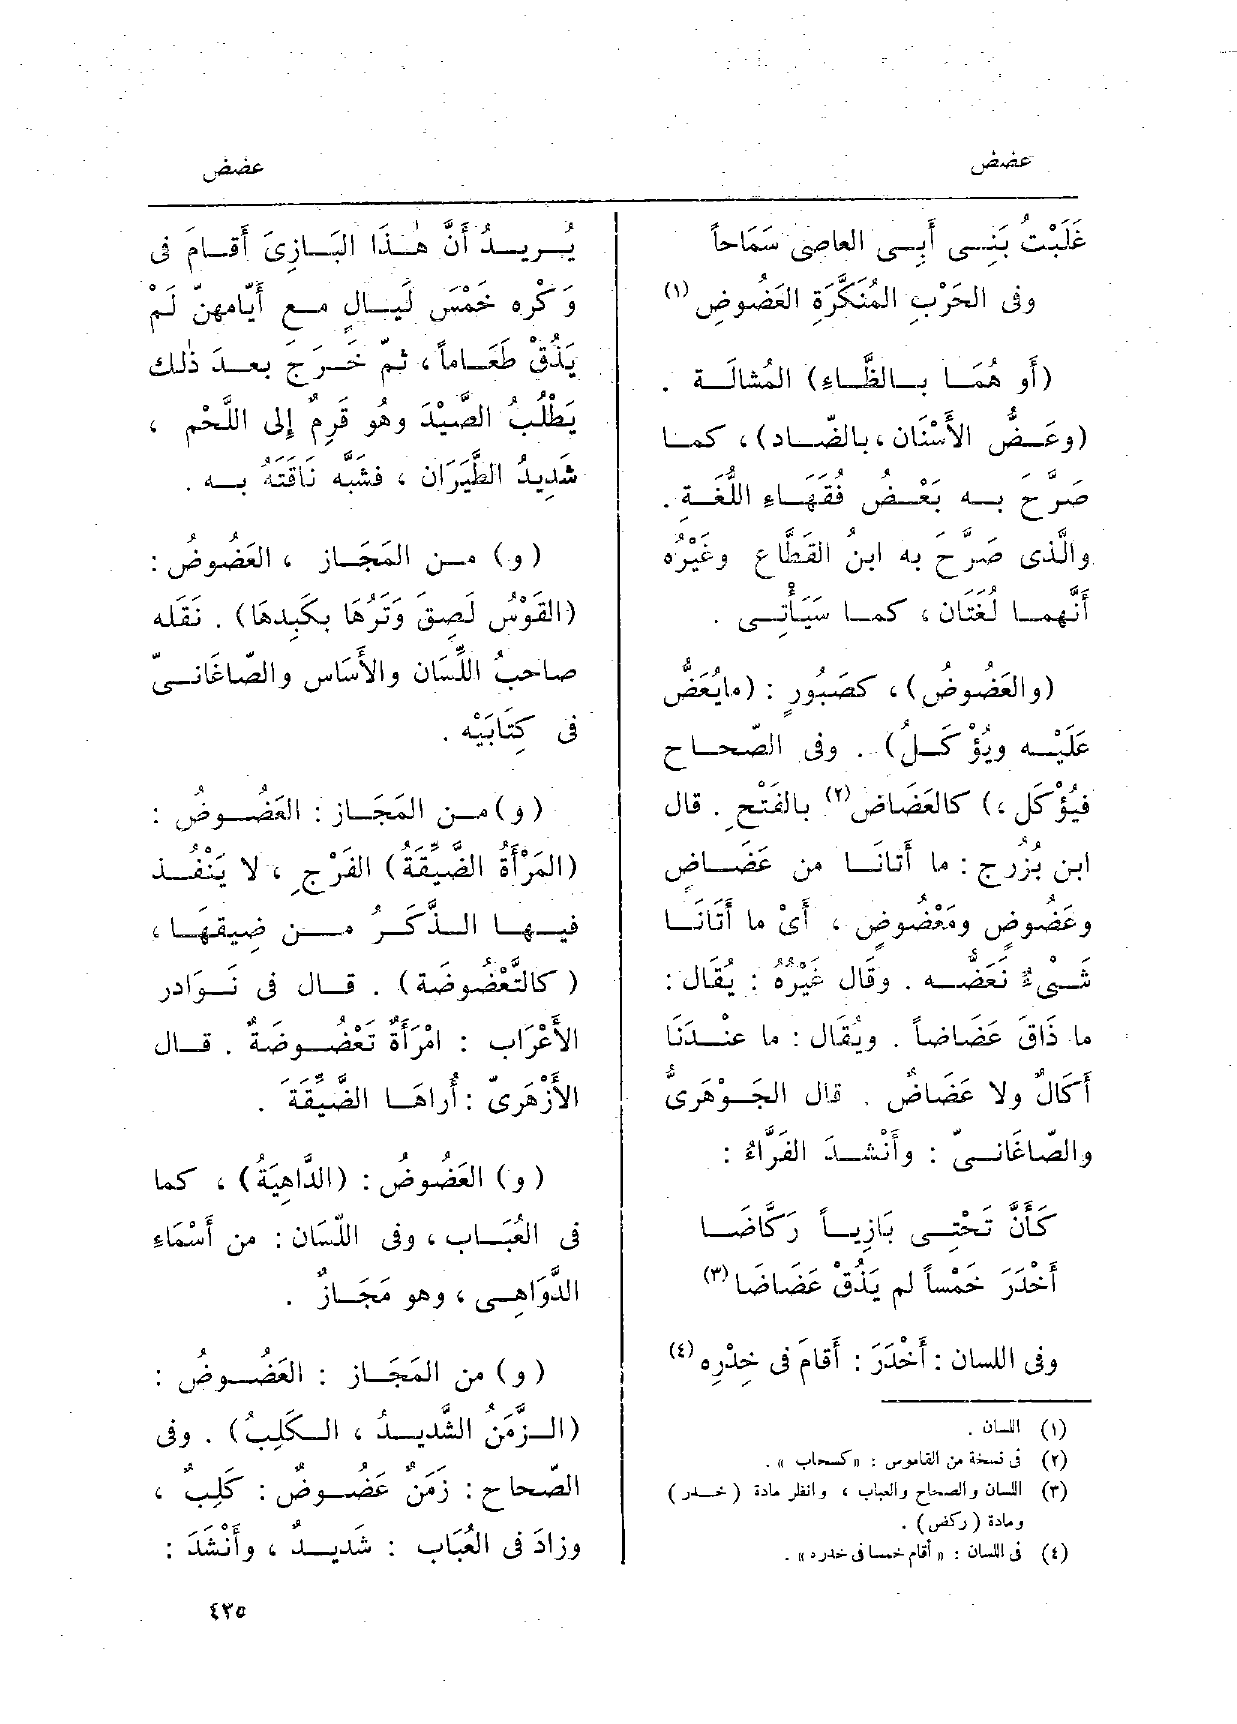 عضض
عضض
غَلَبْتُ بَنِى أَبِى العاصِى سَمَاحاً
وفى الحَرْبِ المُنَكَّرَةِ العَضُوضِ (١)
(أو هُمَا بالظَّاء) المُشالَة .
(وعَضُّ الأَسْنَان ، بالضّاد) ، كما
صَرَّحَ به بَعْضُ فُقَهاءِ اللُّغَةِ .
والَّذى صَرَّحَ به ابنُ القَطَّاع وغَيْرُه
أَنَّهما لُغَتَان ، كما سَيَأْتِى .
(والعَضُوضُ) ، كصَبُورٍ : (مايُعَضُّ
عَلَيْه ويُؤْكَلُ) . وفى الصّحاح
فيُؤْكَل ،) كالعَضَاض (٢) بالفَتْحِ . قال
ابن بُزُرج : ما أَتانَا من عَضَاضٍ
وعَضُوضٍ ومَعْضُوضٍ ، أَىْ ما أَتَانَا
شَىْءٌ نَعَضُّه . وقال غَيْرُهُ : يُقَال :
ما ذَاقَ عَضَاضاً . ويُقَال : ما عِنْدَنَا
أَكَالٌ ولا عَضَاضٌ . قال الجَوْهَرِىُّ
والصّاغَانىّ : وأَنْشَدَ الفَرَّاءُ :
كَأَنَّ تَحْتِى بَازِياً رَكَّاضَا
أَخْدَرَ خَمْساً لم يَذُقْ عَضَاضَا (٣)
وفى اللسان : أَخْدَرَ : أَقامَ فى خِدْرِه (٤)
(١) اللسان .
(٢) فى نسخة من القاموس : «كسحاب» .
(٣) اللسان والصحاح والعباب ، وانظر مادة (خدر)
ومادة (ركض) .
(٤) فى اللسان : «أقام خمسا فى خدره» .
يُريدُ أَنَّ هٰذَا البَازِىَ أَقامَ فى
وَكْرِه خَمْسَ لَيَالٍ مع أَيّامهنّ لَمْ
يَذُقْ طَعَاماً ، ثمّ خَرَجَ بعدَ ذٰلك
يَطْلُبُ الصَّيْدَ وهُو قَرِمٌ إِلى اللَّحْم ،
شَدِيدُ الطَّيَرَان ، فشَبَّه نَاقَتَهُ به .
(و) من المَجَاز ، العَضُوضُ :
(القَوْسُ لَصِقَ وَتَرُهَا بِكَبِدهَا) . نَقَله
صاحبُ اللِّسَان والأَسَاس والصّاغَانىّ
فى كِتَابَيْه .
(و) من المَجَاز : العَضُوضُ :
(المَرْأَةُ الضَّيِّقَةُ) الفَرْجِ ، لا يَنْفُذ
فيها الذَّكَرُ من ضِيقِهَا ،
(كالتَّعْضُوضَة) . قال فى نَوَادر
الأَعْرَاب : امْرَأَةٌ تَعْضُوضَةٌ . قال
الأَزْهَرِىّ : أُراهَا الضَّيِّقَةَ .
(و) العَضُوضُ : (الدَّاهِيَةُ) ، كما
فى العُبَاب ، وفى اللِّسَان : من أَسْمَاء
الدَّوَاهِى ، وهو مَجَازٌ .
(و) من المَجَاز : العَضُوضُ :
(الزَّمَنُ الشَّديدُ ، الكَلِبُ) . وفى
الصّحاح : زَمَنٌ عَضُوضٌ : كَلِبٌ ،
وزادَ فى العُبَاب : شَديدٌ ، وأَنْشَدَ :
٤٣٥